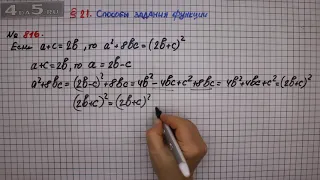 4 из 5 ГДЗ
§ 21. Способы задания функции
№ 816.
Если a+c=2b, то a²+8bc=(2b+c)²
a+c=2b, то a=2b-c
a²+8bc=(2b-c)²+8bc=4b²-4bc+c²+8bc=4b²+4bc+c²=(2b+c)²
(2b+c)²=(2b+c)²